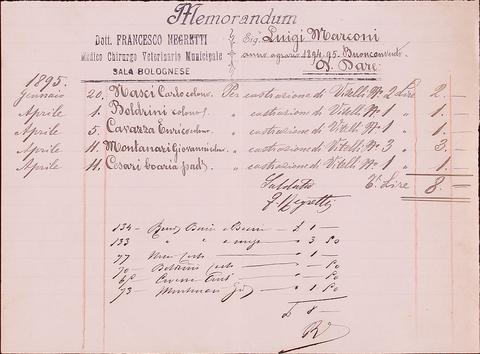 Memorandum
Dott. FRANCESCO NEGRETTI
Medico Chirurgo Veterinario Municipale
SALA BOLOGNESE
Sig. Luigi Marconi
anno agrario 1894-95. Buonconvento
D. Dare
1895.
Gennaio 20. Nasci Carlo colono. Per castrazione di Vitelli N° 2 Lire 2. —
Aprile 1. Boldrini colono " castrazione di Vitelli N° 1 " 1. —
Aprile 5. Cavazza Enrico colono " castrazione di Vitelli N° 1 " 1. —
Aprile 11. Montanari Giovanni colono " castrazione di Vitelli N° 3 " 3. —
Aprile 11. Cesari boaria " castrazione di Vitelli N° 1 " 1. —
Saldato Lire 8. —
F. Negretti
134 — £ 1 —
133 " " " 3 50
77 " 1 —
70 — " — 50
" — 50
73 — Montanari " 1 50
£ 8 —